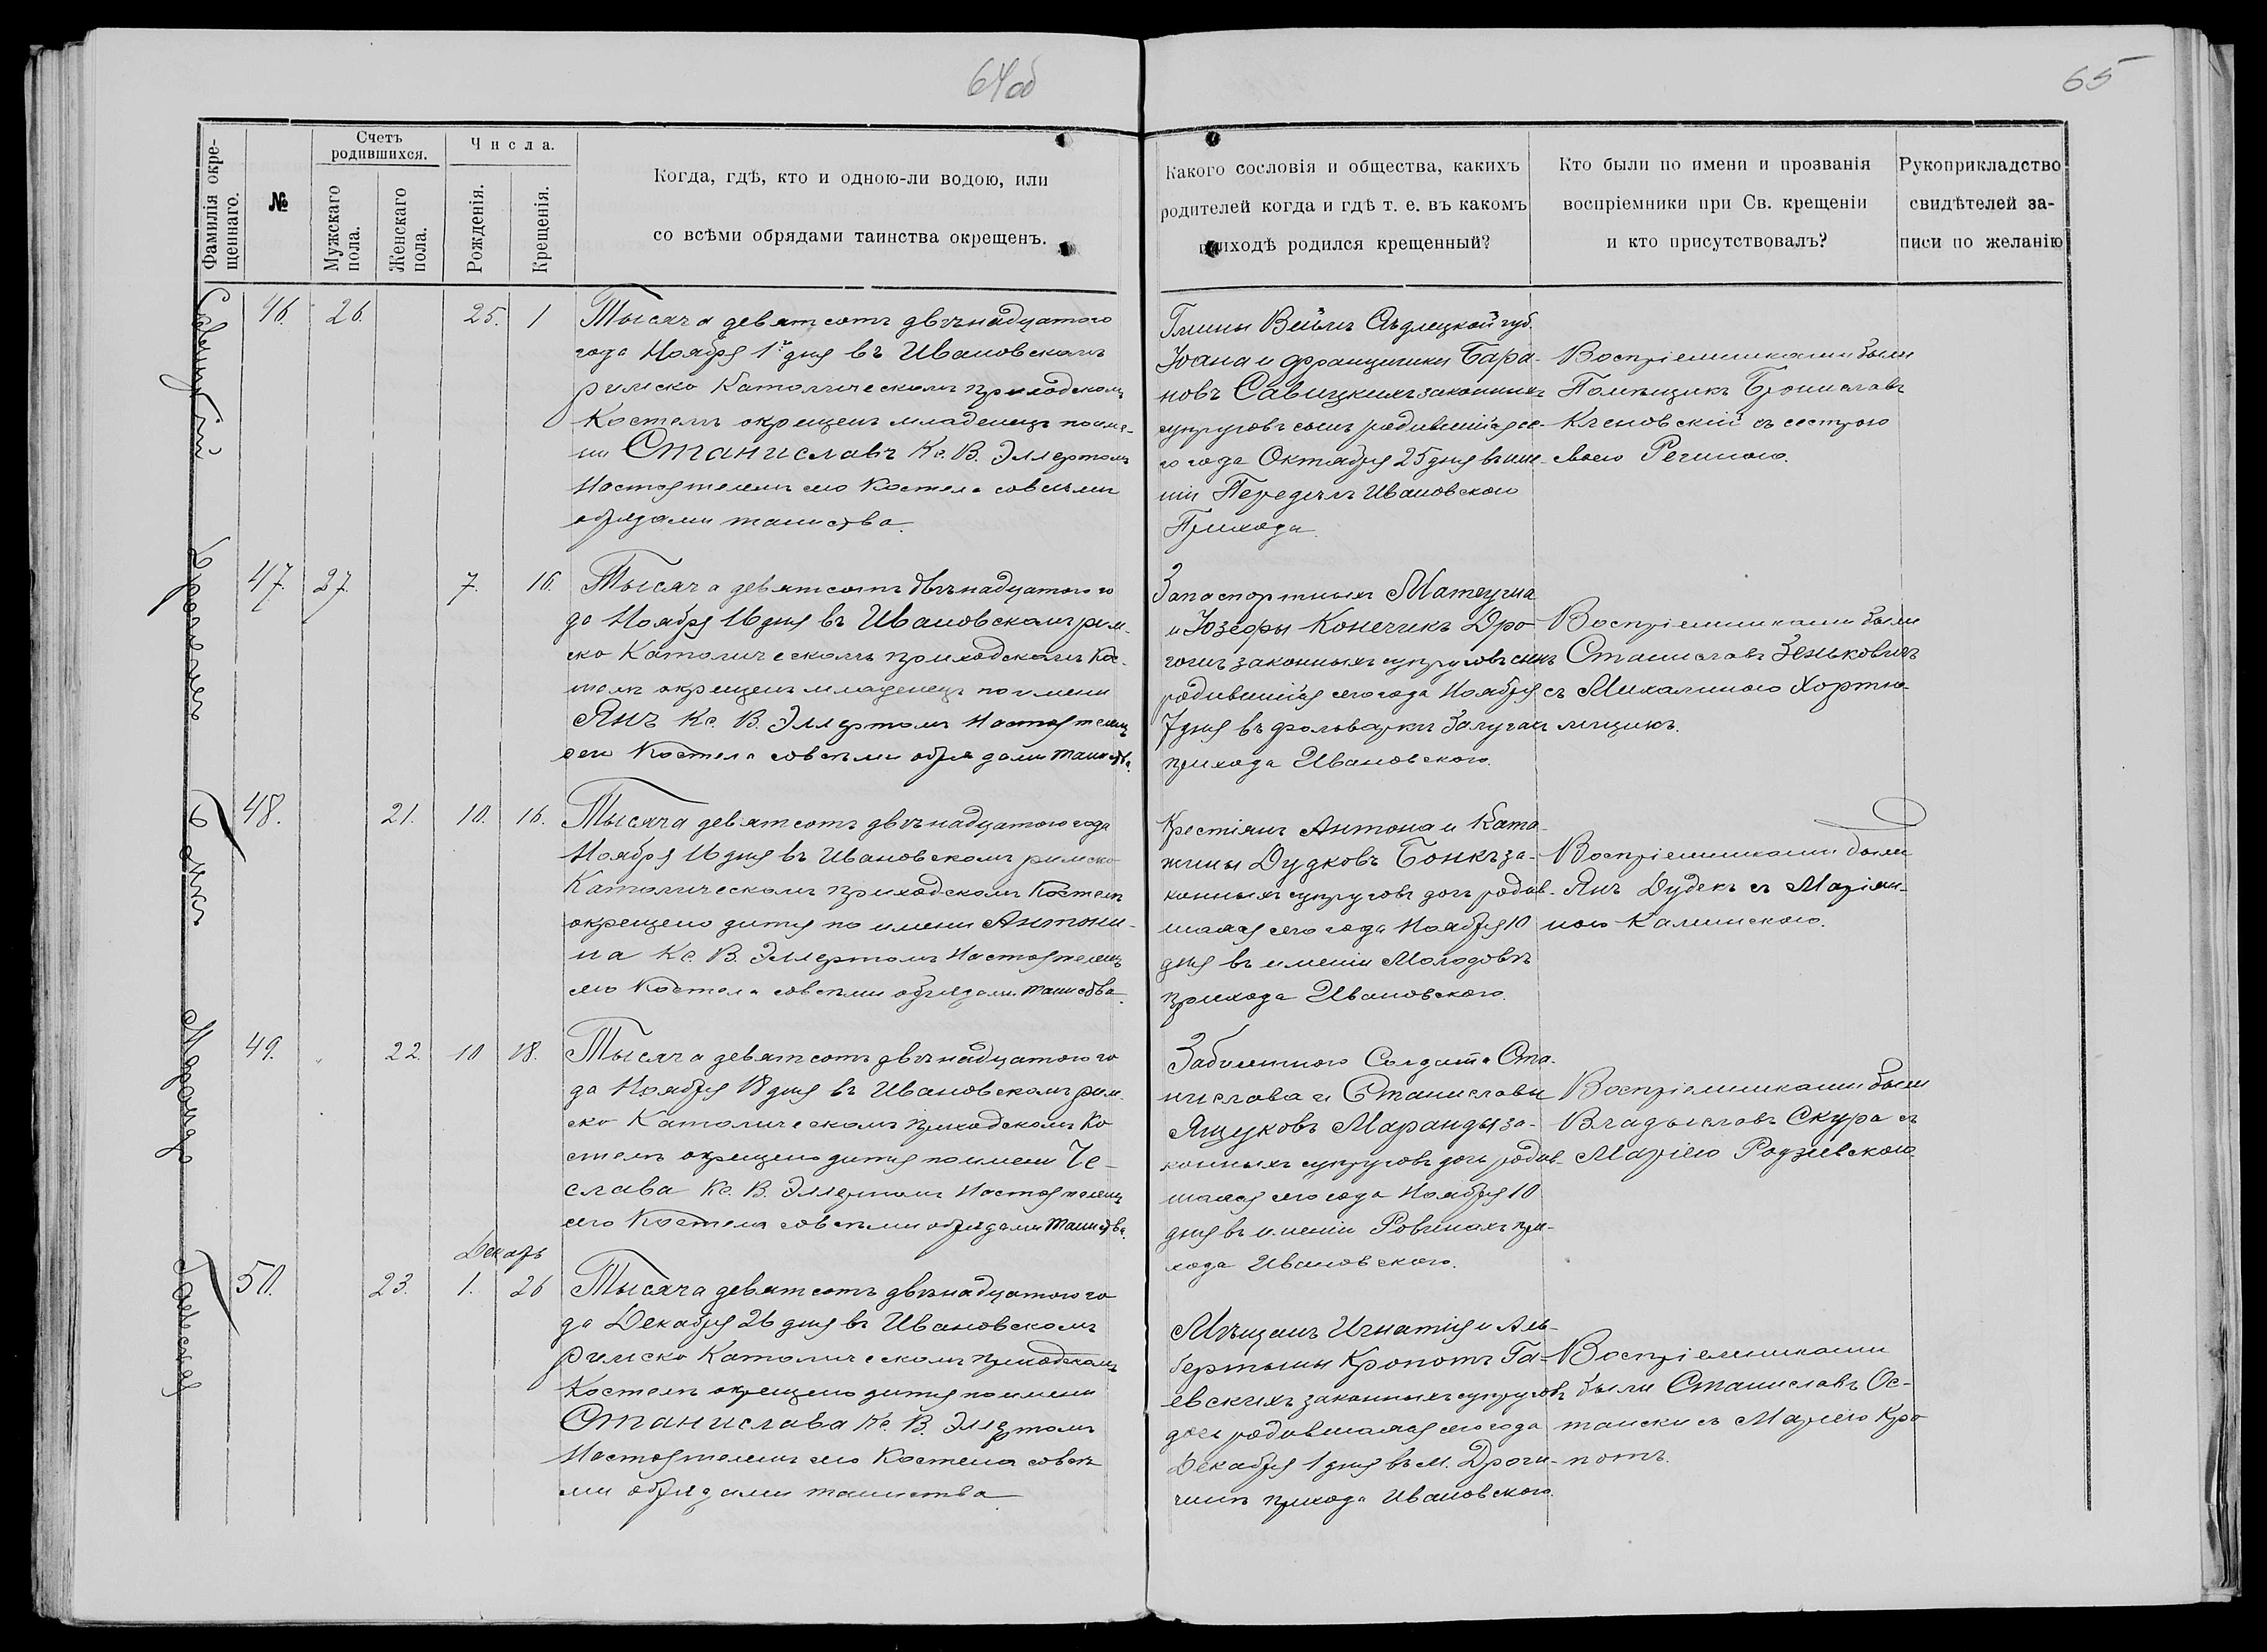 64об
65
Фамилія окре-
щеннаго.
№
Счетъ
родившихся.
Мужскаго
пола.
Женскаго
пола.
Числа.
Рожденія.
Крещенія.
Когда, гдѣ, кто и одною-ли водою, или
со всѣми обрядами таинства окрещенъ.
Какого сословія и общества, какихъ
родителей когда и гдѣ т. е. въ какомъ
приходѣ родился крещенный?
Кто были по имени и прозванія
воспріемники при Св. крещеніи
и кто присутствовалъ?
Рукоприкладство
свидѣтелей за-
писи по желанію
Савицкій
46. 26. 25. 1
Тысяча девятсотъ двѣнадцатого
года Ноября 1 дня въ Ивановскомъ
римско Католическомъ приходскомъ
Костелѣ окрещенъ младенецъ по име-
ни Станиславъ Кс. В. Эллертомъ
Настоятелемъ сего Костела совсѣми
обрядами таинства.
Гмины Вейшъ Сѣдлецкой губ.
Іоана и Францишки Бара-
новъ Савицкихъ законныхъ
супруговъ сынъ родившійся се-
го года Октября 25 дня въ име-
ніи Передѣлъ Ивановского
Прихода.
Воспріемниками были
Помѣщикъ Брониславъ
Кгеновскій съ сестрою
своею Региною.
47. 27. 7. 16.
Тысяча девятсотъ двѣнадцатого го
да Ноября 16 дня въ Ивановскомъ рим-
ско Католическомъ приходскомъ Кос-
телѣ окрещенъ младенецъ по имени
Янъ Кс. В. Эллертомъ Настоятелемъ
сего Костела совсѣми обрядами таинства.
Запаспортныхъ Матеуша
и Юзефы Конечикъ Дро-
гошъ законныхъ супруговъ сынъ
родившійся сего года Ноября
7 дня въ фольваркѣ Залугахъ
прихода Ивановского.
Воспріемниками были
Станиславъ Зеньковичъ
съ Михалиною Хортно-
мѣщикъ.
Бонкъ
48. 21. 10. 16.
Тысяча девятсотъ двѣнадцатого года
Ноября 16 дня въ Ивановскомъ римско
Католическомъ приходскомъ Костелѣ
окрещено дитя по имени Антони-
на Кс. В. Эллертомъ Настоятелемъ
сего Костела совсѣми обрядами таинства.
Крестіянъ Антона и Ката-
жины Дудковъ Бонкъ за-
конныхъ супруговъ дочь родив-
шаяся сего года Ноября 10
дня въ имѣніи Молодовѣ
прихода Ивановского.
Воспріемниками были
Янъ Дудекъ съ Маріян-
ною Калинскою.
Маранда
49. 22. 10 18.
Тысяча девятсотъ двѣнадцатого го
да Ноября 18 дня въ Ивановскомъ рим-
ско Католическомъ приходскомъ Ко
стелѣ окрещено дитя по имени Че-
слава Кс. В. Эллертомъ Настоятелемъ
сего Костела совсѣми обрядами таинства.
Забилетного Солдата Ста-
нислава и Станиславы
Ящуковъ Маранды за-
конныхъ супруговъ дочь родив-
шаяся сего года Ноября 10
дня въ имѣніи Ровинахъ при-
хода Ивановского.
Воспріемниками были
Владыславъ Скура съ
Маріею Родзевскою.
Гаевская
Декабрь
50. 23. 1. 26
Тысяча девятсотъ двѣнадцатого го
да Декабря 26 дня въ Ивановскомъ
римско Католическомъ приходскомъ
Костелѣ окрещено дитя по имени
Станислава Кс. В. Эллертомъ
Настоятелемъ сего Костела совсѣ
ми обрядами таинства.
Мѣщанъ Игнатія и Аль-
бертыны Кропотъ Га-
евскихъ законныхъ супруговъ
дочь родившаяся сего года
Декабря 1 дня въ м. Дроги-
чинѣ прихода Ивановского.
Воспріемниками
были Станиславъ Ос-
тански съ Маріею Кро
потъ.